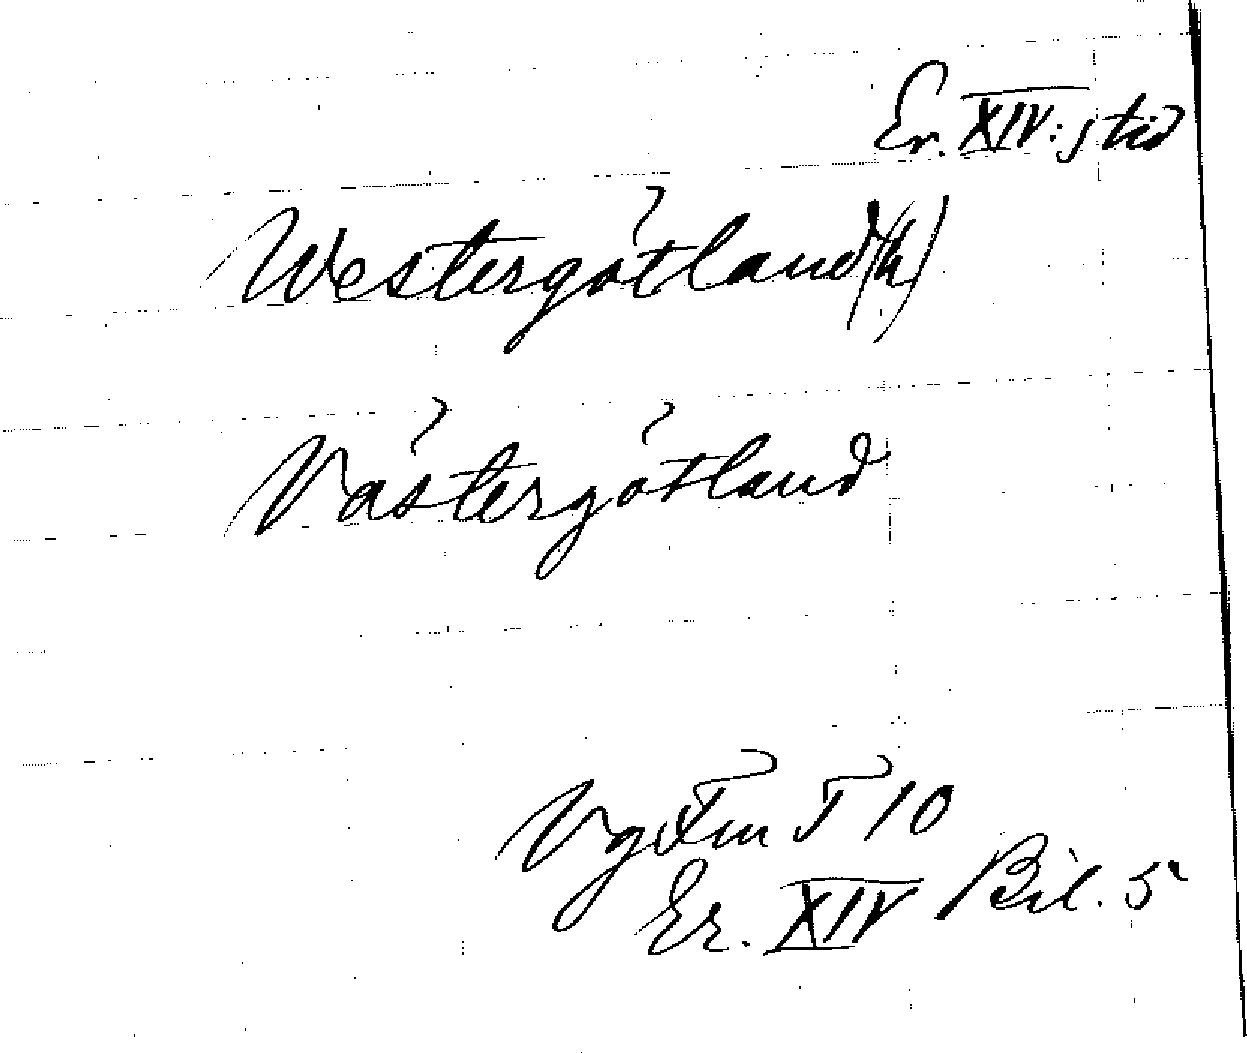 Er. XIV:s tid
Westergötland(h)
Västergötland
Vg Fm T 10
Er. XIV Bil. 5